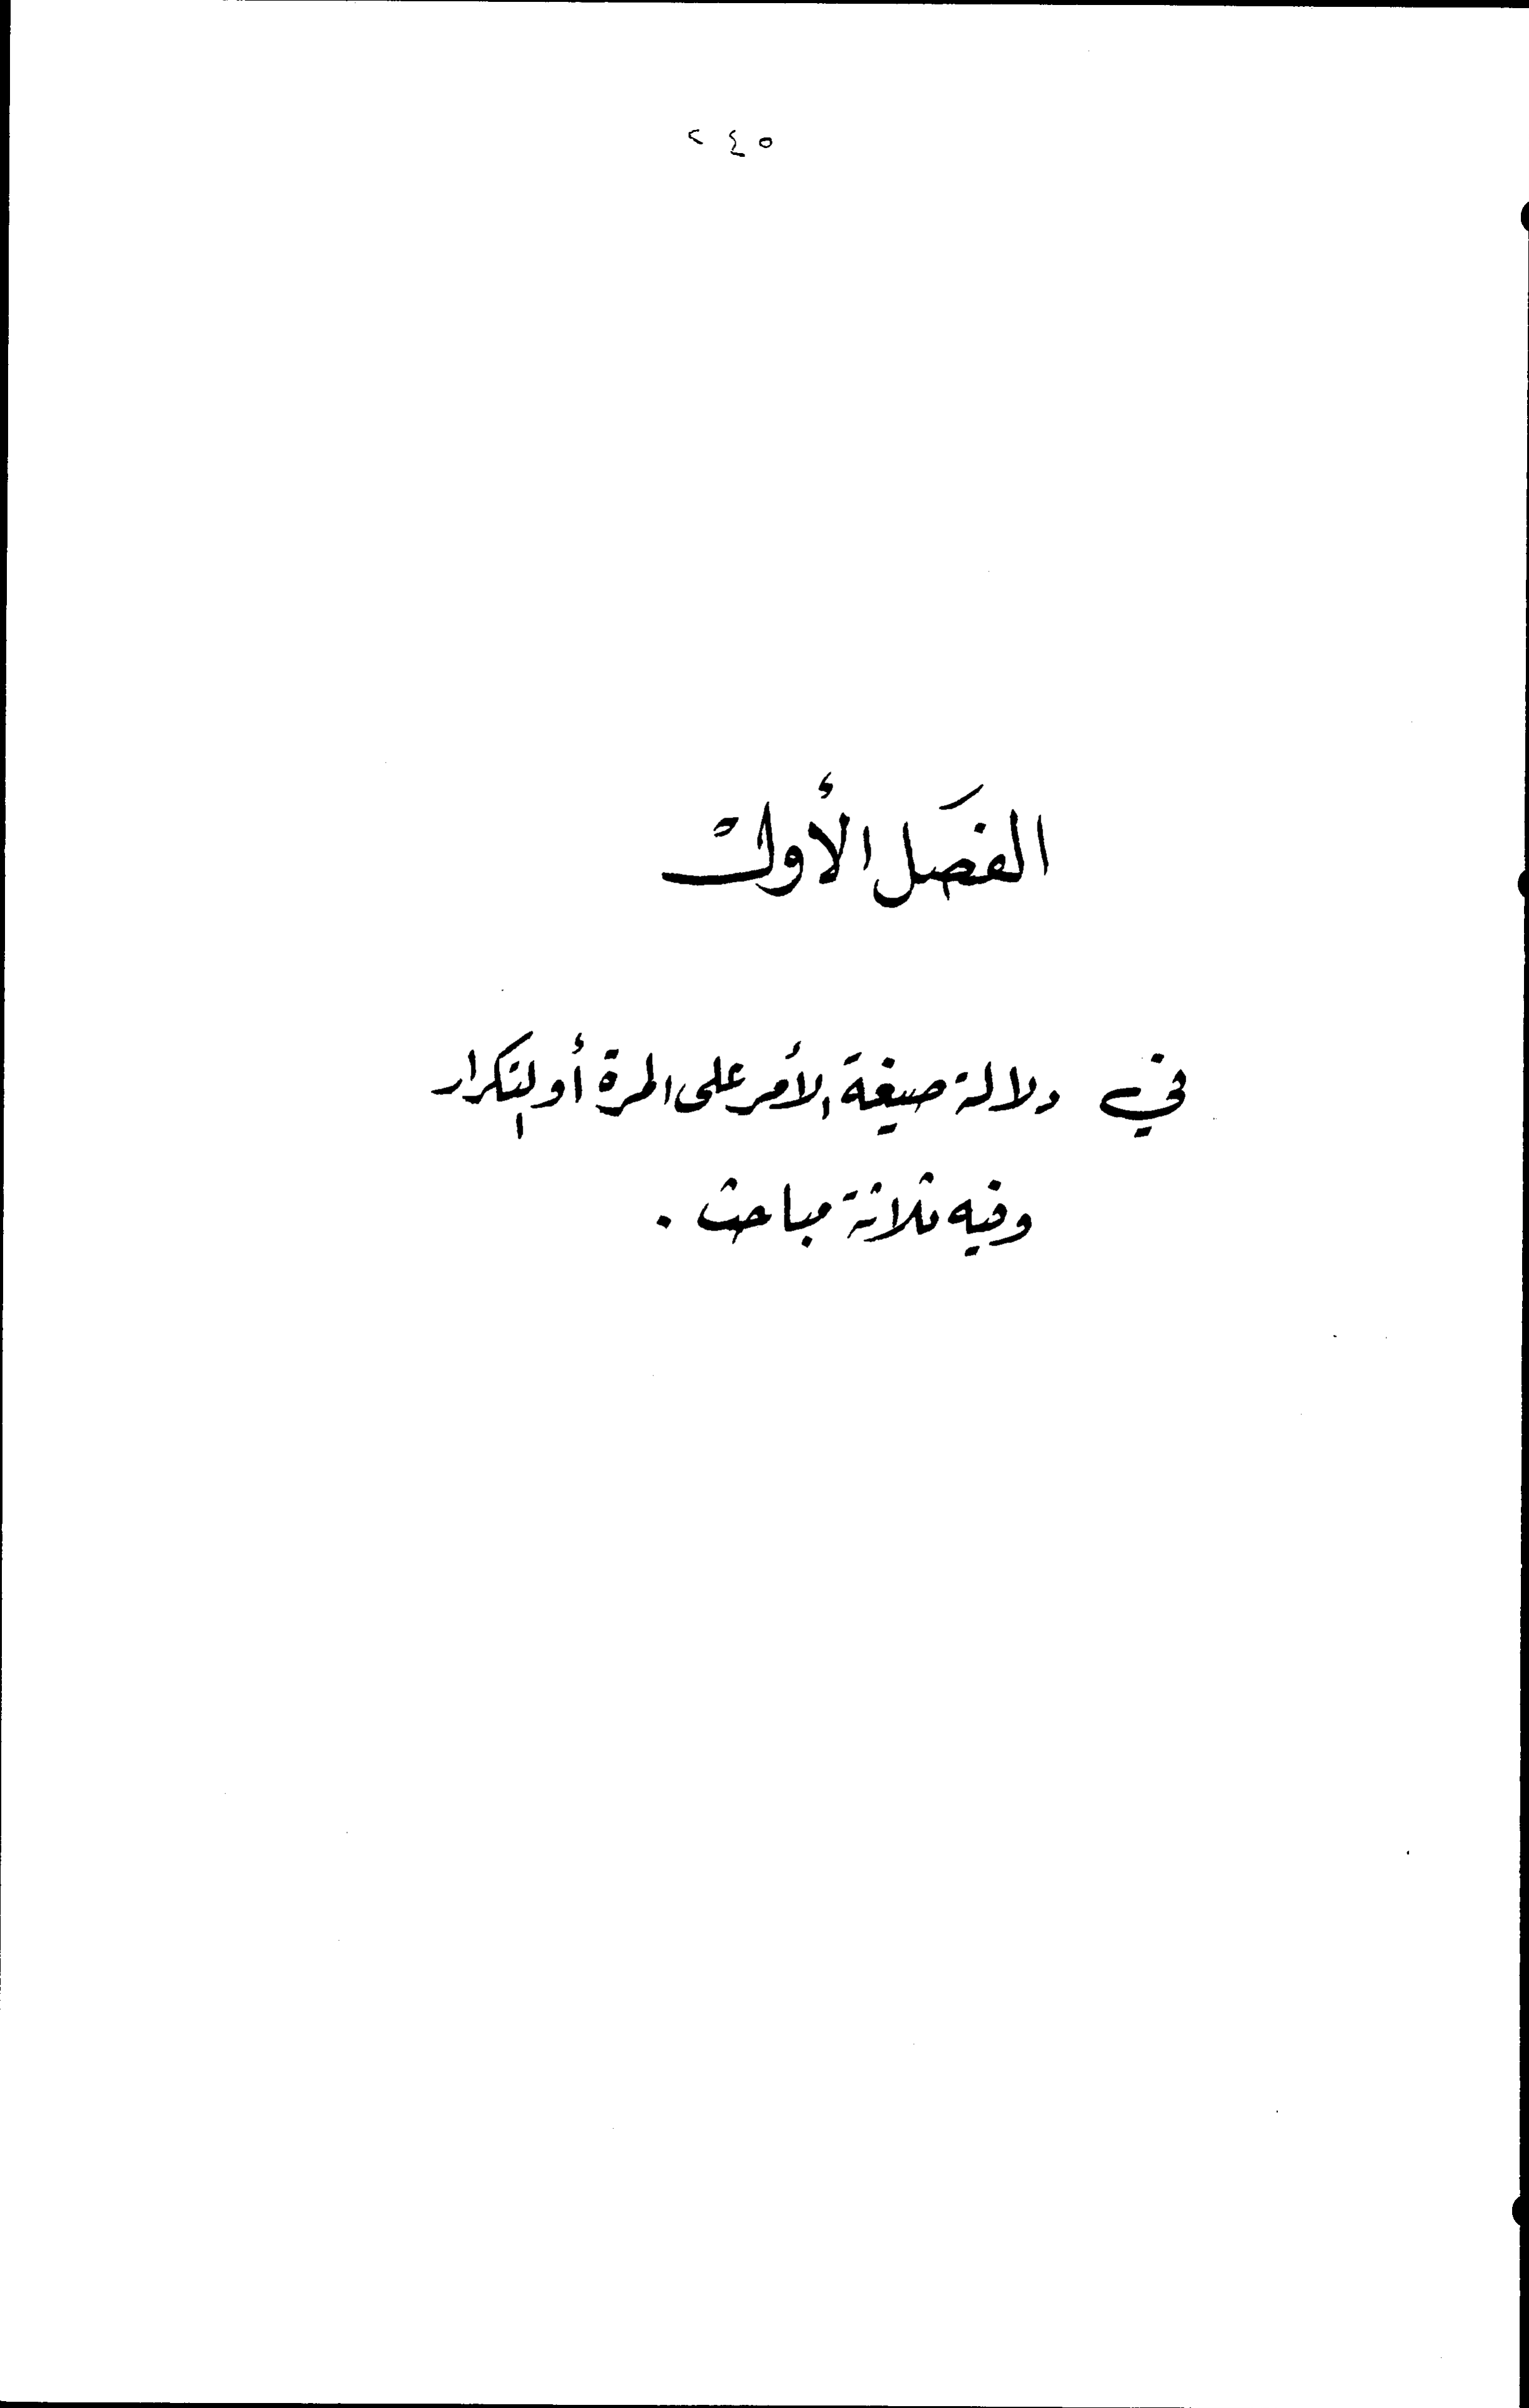 ٢٤٥
الفصَل الأول
في دلالة صيغة الأمر على المرة أو التكرار
وفيه ثلاثة مباحث .